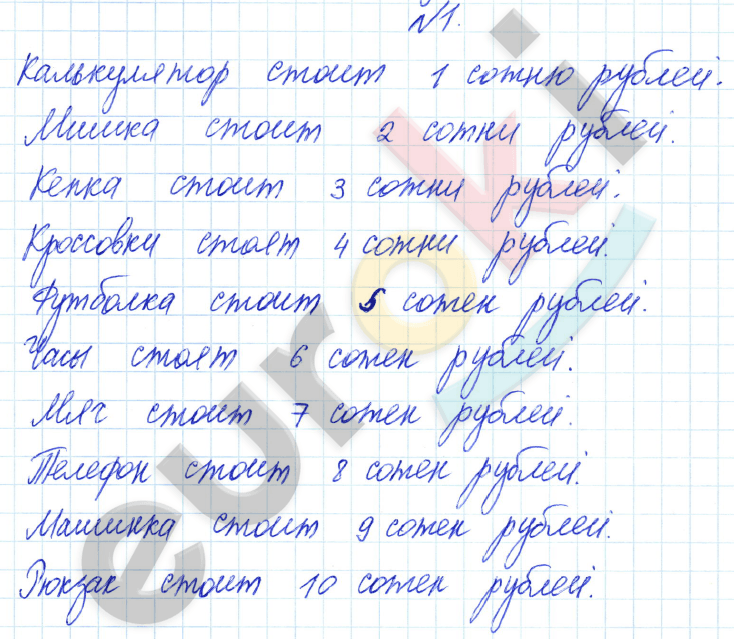 №1.
Калькулятор стоит 1 сотню рублей.
Мишка стоит 2 сотни рублей.
Кепка стоит 3 сотни рублей.
Кроссовки стоят 4 сотни рублей.
Футболка стоит 5 сотен рублей.
Часы стоят 6 сотен рублей.
Мяч стоит 7 сотен рублей.
Телефон стоит 8 сотен рублей.
Машинка стоит 9 сотен рублей.
Рюкзак стоит 10 сотен рублей.
euroki